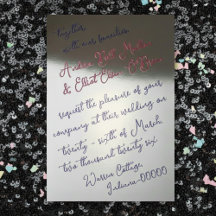 Together
with our families
& Elliot
request the pleasure of your
company at their wedding on
twenty-sixth of March
two thousand twenty six
Warren Cottage,
Indiana-00000